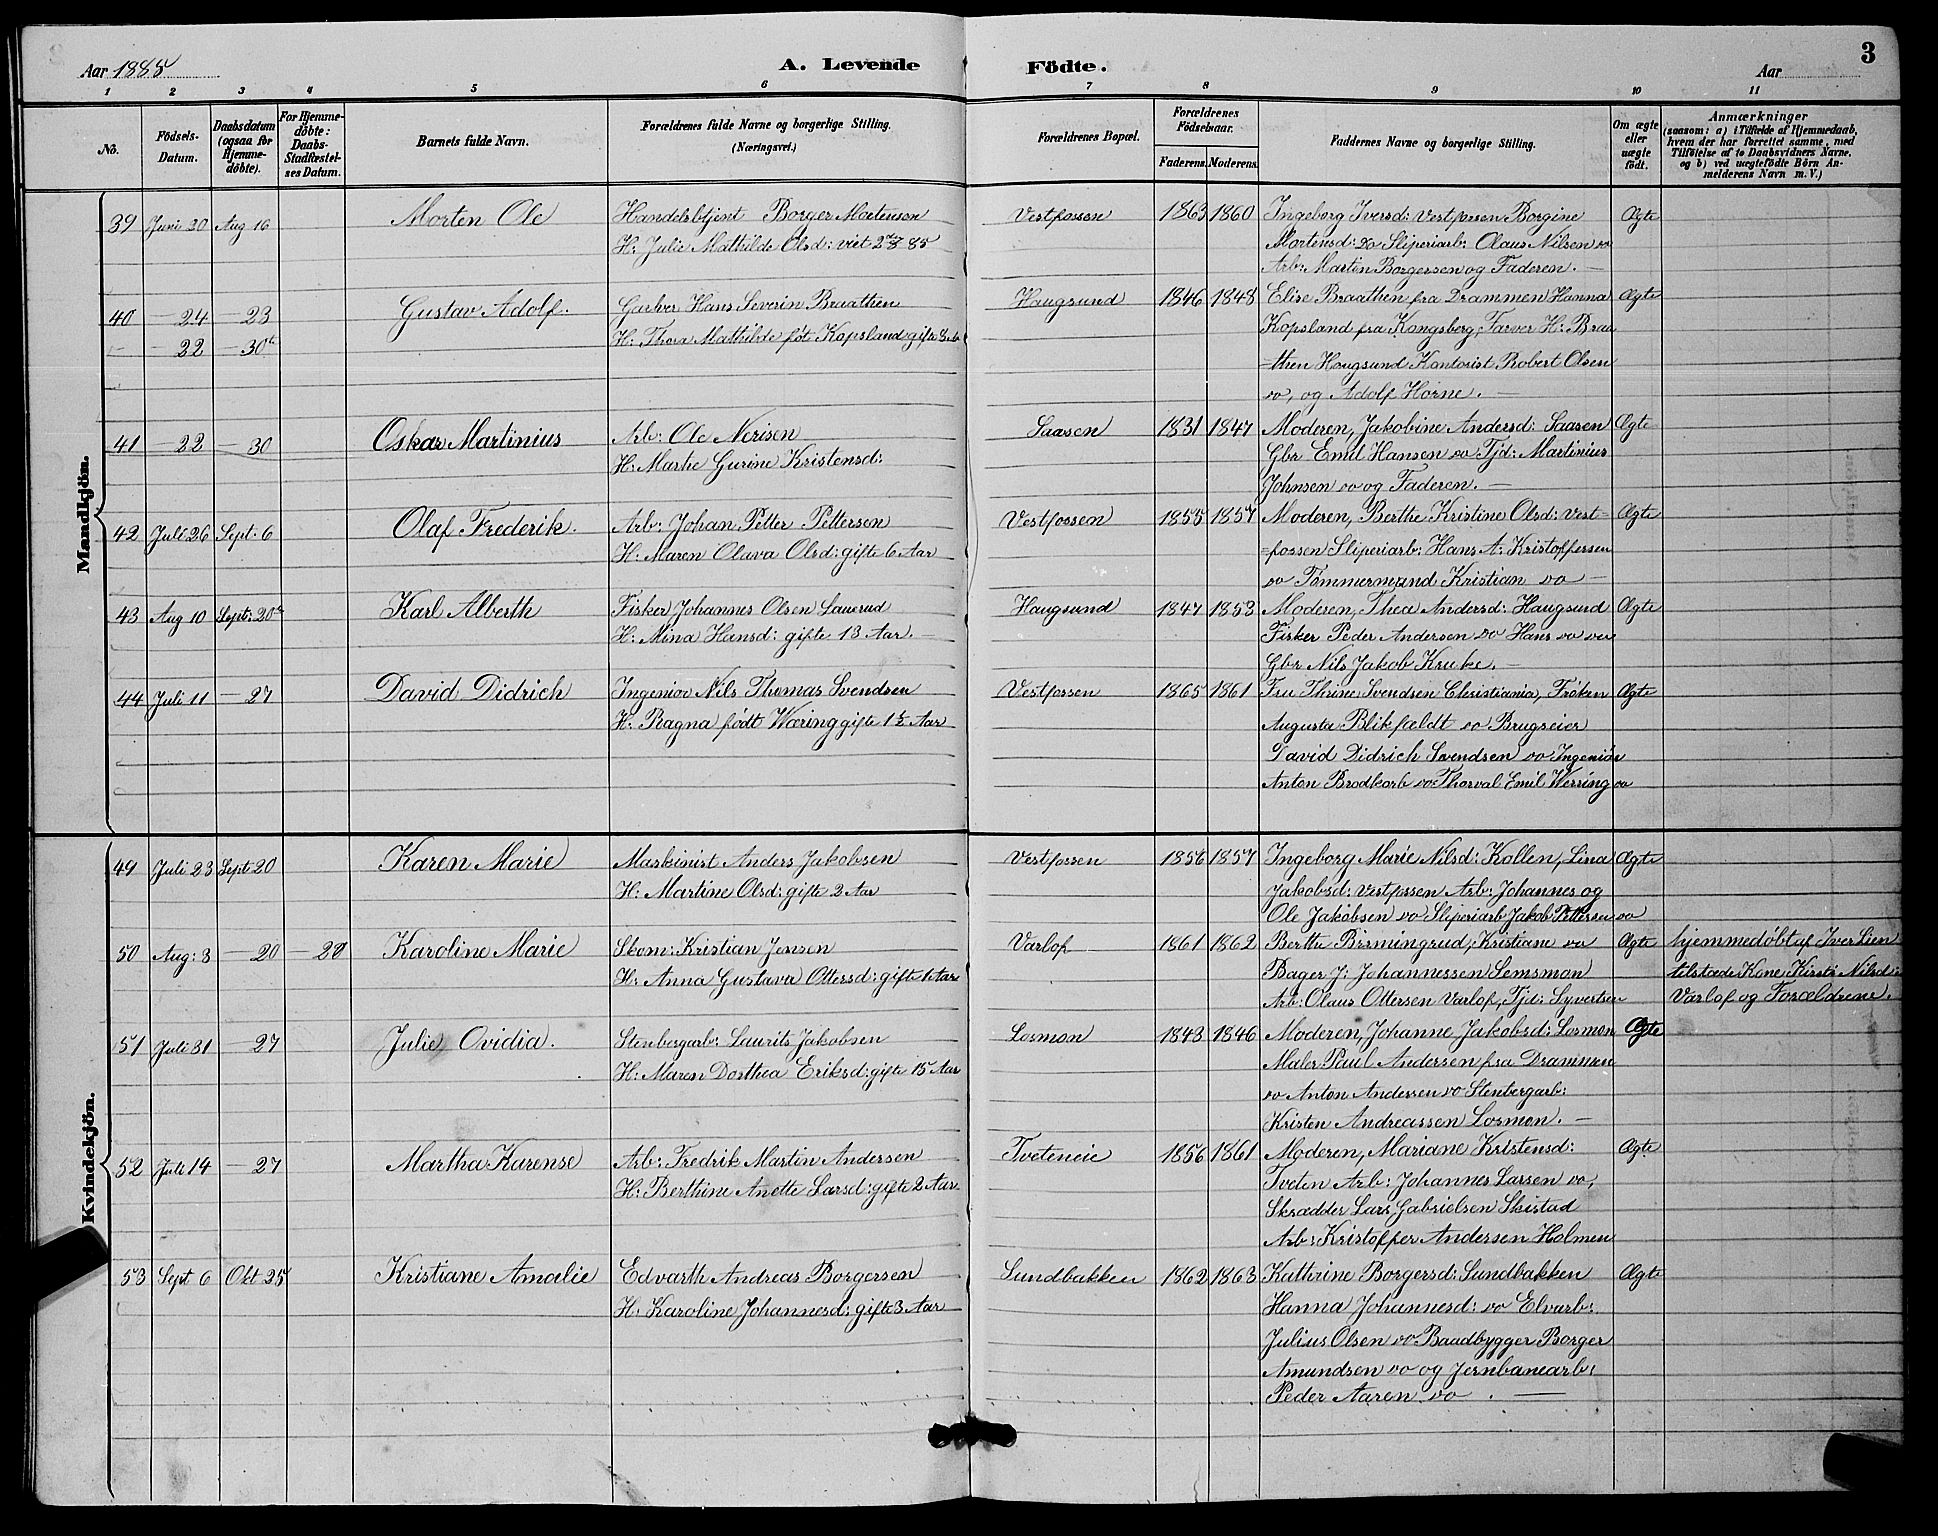 Aar 1885
A. Levende Födte.
Aar
3
1 2 3 4 5 6 7 8 9 10 11
No.
Födsels-Datum.
Daabsdatum (ogsaa for Hjemme-döbte).
For Hjemme-döbte: Daabs-Stadfæstel-ses Datum.
Barnets fulde Navn.
Forældrenes fulde Navne og borgerlige Stilling. (Næringsvei.)
Forældrenes Bopæl.
Forældrenes Födselsaar.
Faderens. Moderens.
Faddernes Navne og borgerlige Stilling.
Om ægte eller uægte födt.
Anmærkninger
(saasom: a) i Tilfælde af Hjemmedaab, hvem der har forrettet samme, med Tilföielse af to Daabsvidners Navne, og b) ved uægtefödte Börn An-melderens Navn m. V.)
Mandkjön.
39 Juni 30 Aug 16 Morten Ole Handelsbtjent Borger Mortensen Vestfossen 1863 1860 Ingeborg Iversd: Vestfossen Borgine Ægte
H: Julie Mathilde Olsd: viet 85 Mortensd: do Sliperiarb: Olaus Nilsen do
Arb: Martin Borgersen og Faderen. —
40 — 24 — 23 Gustav Adolf. Garver Hans Severin Braathen Haugsund 1846 1848 Elise Braathen fra Drammen Hanna Ægte
— 22 — 30 H: Thora Mathilde föt Kopsland gifte Kopsland fra Kongsberg, Farver H: Braa
=then Hougsund Kontorist Robert Olsen
do, og Adolf Horne. —
41 — 22 — 30 Oskar Martinius Arb: Ole Nerisen Saasen 1831 1847 Moderen, Jakobine Andersd: Saasen Ægte
H: Marthe Gurine Kristensd: Gbr Emil Hansen do Tjd: Martinius
Johnsen do og Faderen. —
42 Juli 26 Sept. 6 Olaf Frederik. Arb: Johan Petter Pettersen Vestfossen 1855 1857 Moderen, Berthe Kristine Olsd: Vest= Ægte
H: Maren Olava Olsd: gifte 6 Aar =fossen Sliperiarb: Hans A: Kristoffersen
do Tømmermand Kristian do —
43 Aug 10 Sept: 20 Karl Alberth Fisker Johannes Olsen Lauerud Haugsund 1847 1853 Moderen, Thea Andersd: Haugsund Ægte
H: Mina Hansd: gifte 13 Aar. — Fisker Peder Andersen do Hans do do
Gbr Nils Jakob Kruke. —
44 Juli 11 — 27 David Didrich Ingeniør Nils Thomas Svendsen Vestfossen 1865 1861 Fru Thrine Svendsen Christiania, Frøken Ægte
H: Ragna født Wæring gifte 1½ Aar Augusta Blikfældt do Brugseier
David Didrich Svendsen do Ingeniør
Anton Brodkorb do Thorval Emil Werring do
Kvindekjön.
49 Juli 23 Sept 20 Karen Marie Maskinist Anders Jakobsen Vestfossen 1856 1857 Ingeborg Marie Nilsd: Kollen, Lina Ægte
H: Martine Olsd: gifte 2 Aar Jakobsd: Vestfossen Arb: Johannes og
Ole Jakobsen do Sliperiarb Jakob Pettersen do
50 Aug: 3 — 20 — 20 Karoline Marie Skom: Kristian Jensen Varlof 1861 1862 Berthe Bismingrud, Kristiane do Ægte hjemmedøbt af Iver Lien
H: Anna Gustava Ottersd: gifte 1 Aar Bager J: Johannessen Semsmon tilstæde Kone Kirsti Nilsd:
Arb: Olaus Ottersen Varlof, Tjd: Syvertsen Varlof og Forældrene.
51 Juli 31 — 27 Julie Ovidia. Stenbergarb: Laurits Jakobsen Losmon 1843 1846 Moderen, Johanne Jakobsd: Losmon Ægte
H: Maren Dorthea Eriksd: gifte 15 Aar Maler Paul Andersen fra Drammen
do Anton Andersen do Stenbergarb:
Kristen Andreassen Losmon. —
52 Juli 14 — 27 Martha Karense Arb: Fredrik Martin Andersen Tveteneie 1856 1861 Moderen, Mariane Kristensd: Ægte
H: Berthine Anette Larsd: gifte 2 Aar Tveten Arb: Johannes Larsen do,
Skrædder Lars Gabrielsen Skistad
Arb: Kristoffer Andersen Holmen
53 Sept 6 Okt 25 Kristiane Amalie Edvarth Andreas Borgersen Sundbakken 1862 1863 Kathrine Borgersd: Sundbakken Ægte
H: Karoline Johannesd: gifte 3 Aar Hanna Johannesd: do Elvarb:
Julius Olsen do Baadbygger Borger
Amundsen do og Jernbanearb:
Peder Aaren do . —